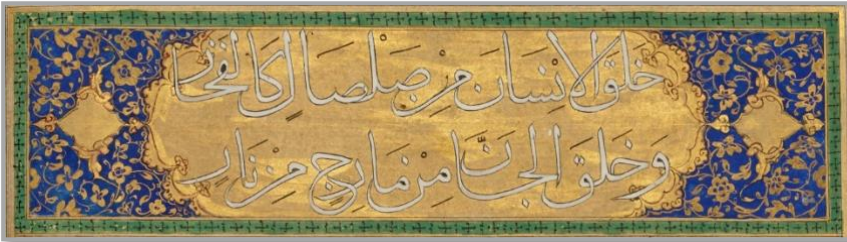 خلق الانسان من صلصال كالفخار
وخلق الجان من مارج من نار